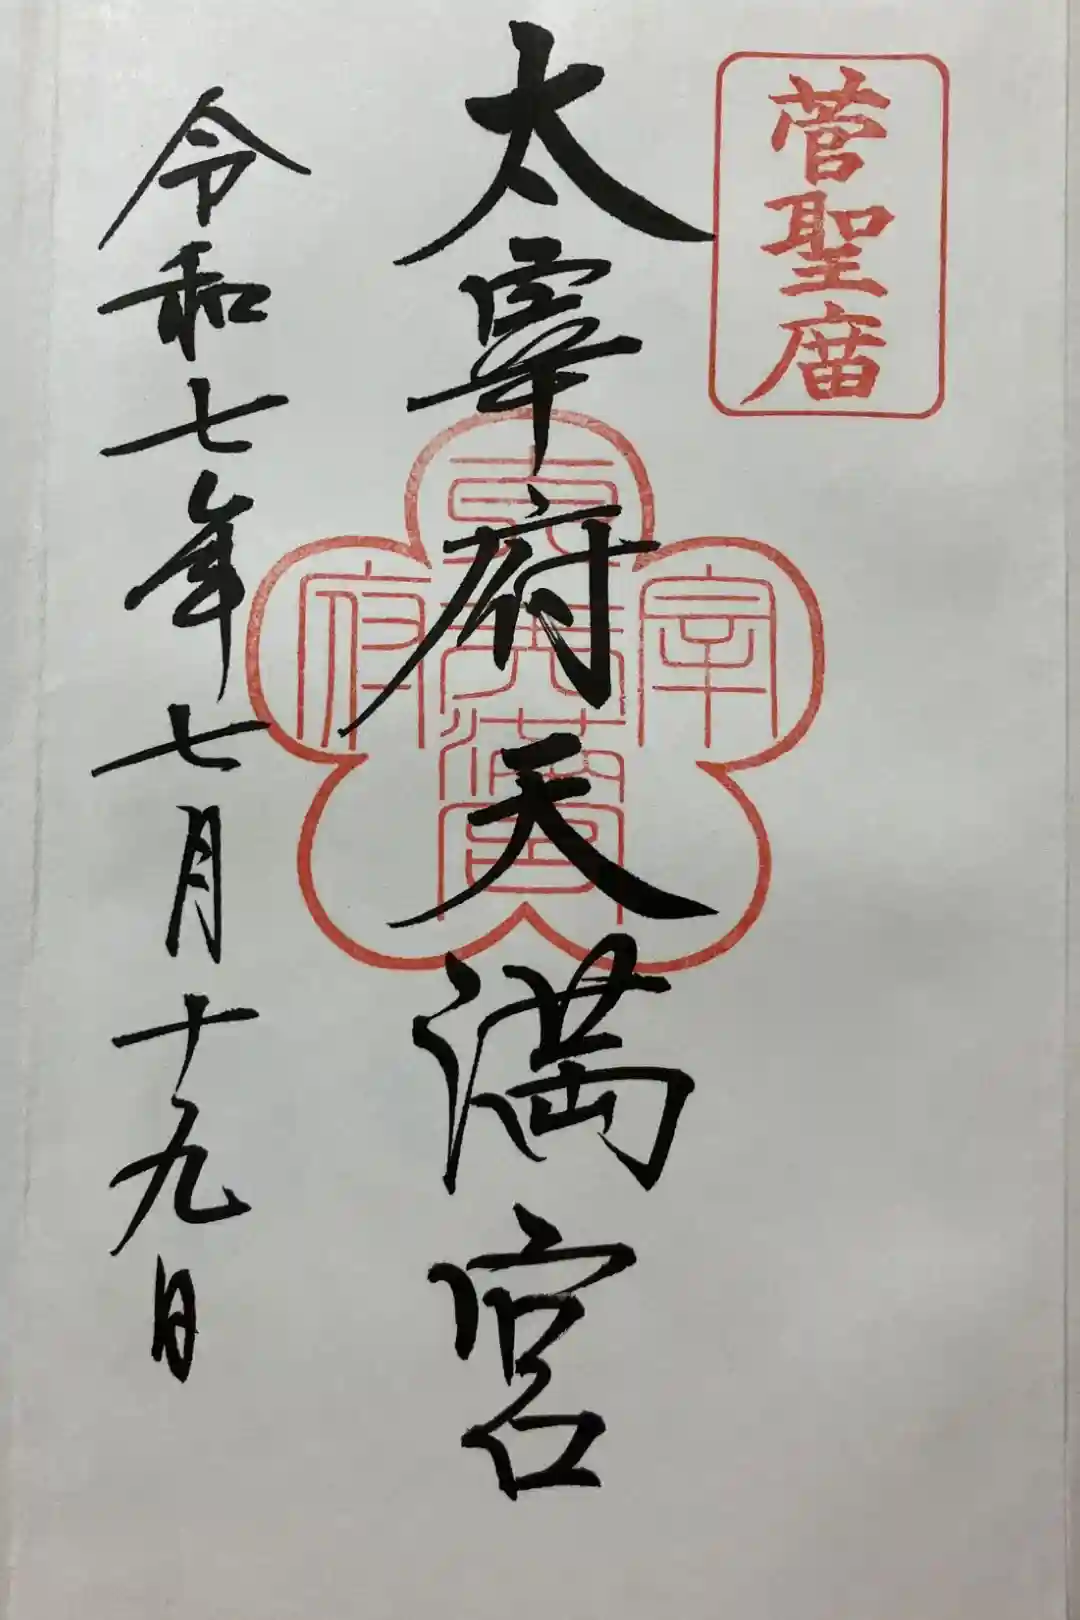 菅聖庿
太宰府天満宮
太宰府天満宮
令和七年七月十九日